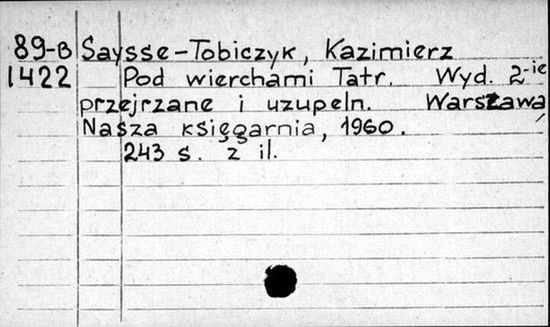 89-B Saysse-Tobiczyk, Kazimierz
1422 Pod wierchami Tatr. Wyd. 2-ie
przejrzane i uzupełn. Warszawa,
Nasza księgarnia, 1960.
243 s. z il.